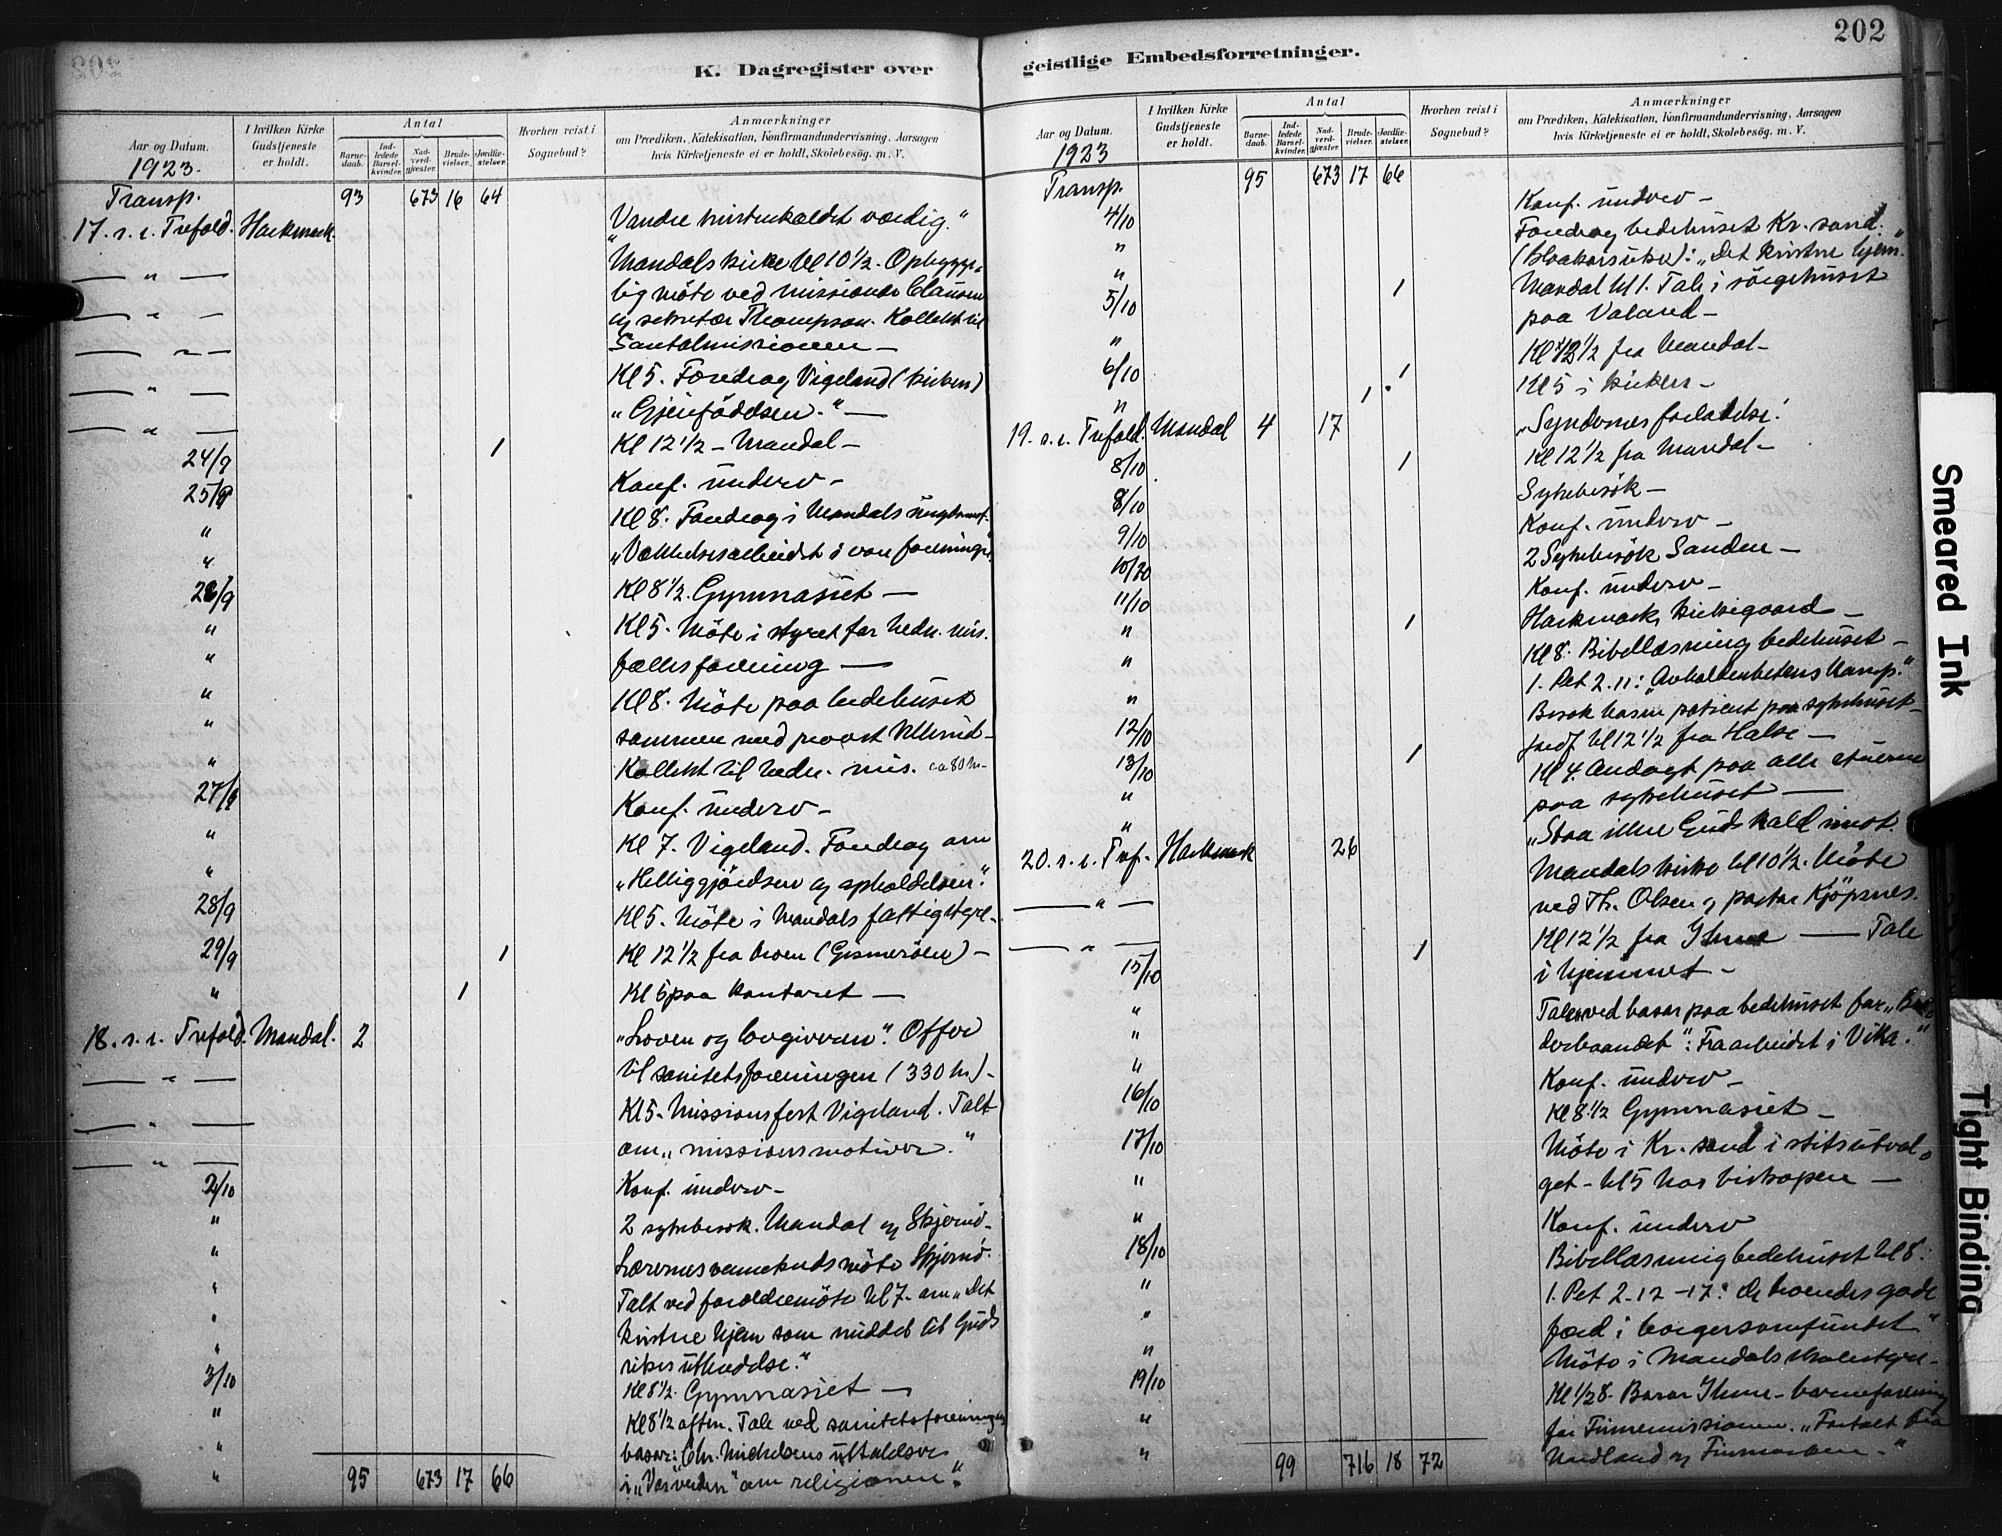 202
K. Dagregister over geistlige Embedsforretninger.
Aar og Datum. 1923.
I hvilken Kirke Gudstjeneste er holdt.
Antal
Barnedaab.
Indledede Barselkvinder.
Nadverdgjæster.
Brudevielser.
Jordfæstelser.
Hvorhen reist i Sognebud?
Anmærkninger
om Prædiken, Katekisation, Konfirmandundervisning, Aarsagen
hvis Kirketjeneste ei er holdt, Skolebesøg. m. V.
Transp. 93 673 16 64
17. s. e. Trefold. Harkmark. "Vandre kristenkaldet værdig."
— " — Mandals kirke kl 10½. Opbygge-
lig möte ved missionær Clausen
— " — og sekretær Thompson. Kollekt til
— " — Santalmissionen —
— " — Kl 5. Foredrag Vigeland (kirken)
— " — "Gjenfödelsen." —
24/9 1 Kl 12½ - Mandal -
25/9 Konf. underv -
" Kl 8. Foredrag i Mandals
" "Vækkelsesarbeidet i vore foreninger"
26/9 Kl 8½. Gymnasiet —
" Kl 5. Möte i styret for hedn. mis.
" fællesforening —
" Kl 8. Möte paa bedehuset
" sammen med provst
" Kollekt til hedn. mis. ca 80 kr-
27/9 Konf. underv -
" Kl 7. Vigeland. Foredrag om
" "Helliggjörelsen og opholdelsen".
28/9 Kl 5. Möte i Mandals fattigstyre-
29/9 1 Kl 12½ fra broen (Gismeröen) -
" 1 Kl 6 paa kontoret —
18. s. e. Trefold. Mandal. 2 "Loven og lovgiveren". Offer
— " — til sanitetsforeningen (330 kr) -
— " — Kl 5. Missionsfest Vigeland. Talt
— " — om "missionsmotiver."
2/10 Konf. underv -
" 2 sykebesök. Mandal og Skjernö.
" Lærernes vennekreds möte Skjernö.
" Talt ved forældremöte kl 7. om "Det
" kristne hjem som middel til Guds
" rikes utbredelse."
3/10 Kl 8½. Gymnasiet —
" Kl 8½ aften. Tale ved sanitetsforeningens
" basar: Chr. Michelsens uttalelser
" i "Vor verden" om religionen".
95 673 17 66
Aar og Datum. 1923
I hvilken Kirke Gudstjeneste er holdt.
Antal
Barnedaab.
Indledede Barselkvinder.
Nadverdgjæster.
Brudevielser.
Jordfæstelser.
Hvorhen reist i Sognebud?
Anmærkninger
om Prædiken, Katekisation, Konfirmandundervisning, Aarsagen
hvis Kirketjeneste ei er holdt, Skolebesøg. m. V.
Transp. 95 673 17 66
4/10 Konf. underv -
" Foredrag bedehuset Kr. sand.
" : "Det kristne hjem."
5/10 1 Mandal kl 1. Tale i sörgehuset
" paa Valand -
6/10 1 Kl 12½ fra Mandal -
" 1 Kl 5 i kirken -
19. s. e. Trefold. Mandal 4 17 "Syndernes forladelse."
8/10 1 Kl 12½ fra Mandal -
8/10 Sykebesök -
9/10 Konf. underv -
10/10 2 Sykebesök Sanden -
11/10 Konf. underv -
" 1 Harkmark kirkegaard -
" Kl 8. Bibellæsning bedehuset -
" 1. Pet 2.11: "Avholdenhetens kamp."
12/10 Besök hos en patient paa sykehuset -
13/10 1 Jordf. kl 12½ fra Halse —
" Kl 4. Andagt paa alle stuerne
" paa sykehuset —
20. s. e. Tref. Harkmark 26 "Staa ikke Guds kald imot.
— " — Mandals kirke kl 10½. Möte
— " — ved Th. Olsen og pastor Kjöpsnes.
15/10 1 Kl 12½ fra Ihme — Tale
" i hjemmet -
" Tale ved basar paa bedehuset for "Bro
" derbaandet": Fra arbeidet i Vika."
16/10 Konf. underv -
17/10 Kl 8½ Gymnasiet -
" Möte i Kr. sand i stiftsutval-
" get - kl 5 hos biskopen —
18/10 Konf. underv
" Bibellæsning bedehuset kl 8.
" 1. Pet 2-12-17: "De troendes gode
" færd i borgersamfundet"
19/10 Möte i Mandals skolestyre -
" Kl ½8. Basar Ihme - barneforening
" for Finnemissionen. "Fortalt fra
Nordland og Finmarken."
99 716 18 72
Smeared Ink
Tight Binding